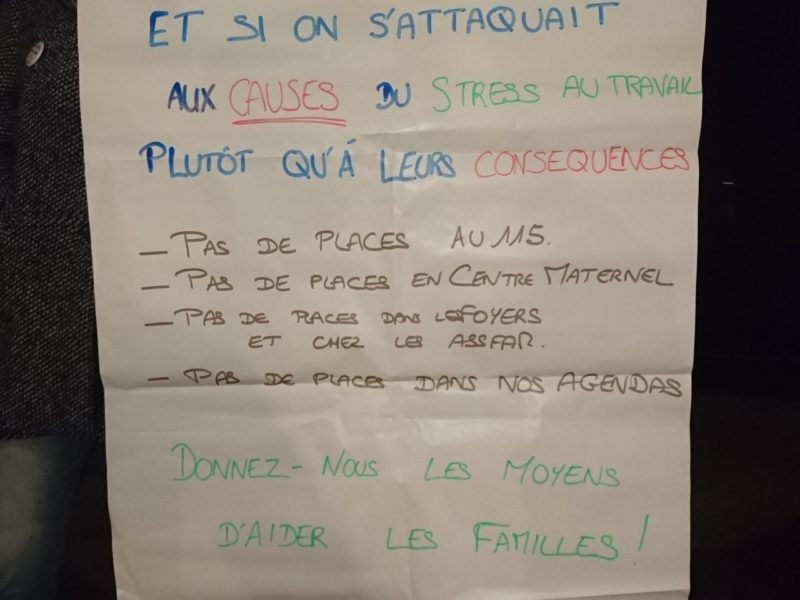 ET SI ON S'ATTAQUAIT
AUX CAUSES DU STRESS AU TRAVAIL
PLUTÔT QU'À LEURS CONSEQUENCES
— PAS DE PLACES AU 115.
— PAS DE PLACES EN CENTRE MATERNEL
— PAS DE PLACES DANS LES FOYERS
ET CHEZ LES ASSFAR.
— PAS DE PLACES DANS NOS AGENDAS
DONNEZ-NOUS LES MOYENS
D'AIDER LES FAMILLES !